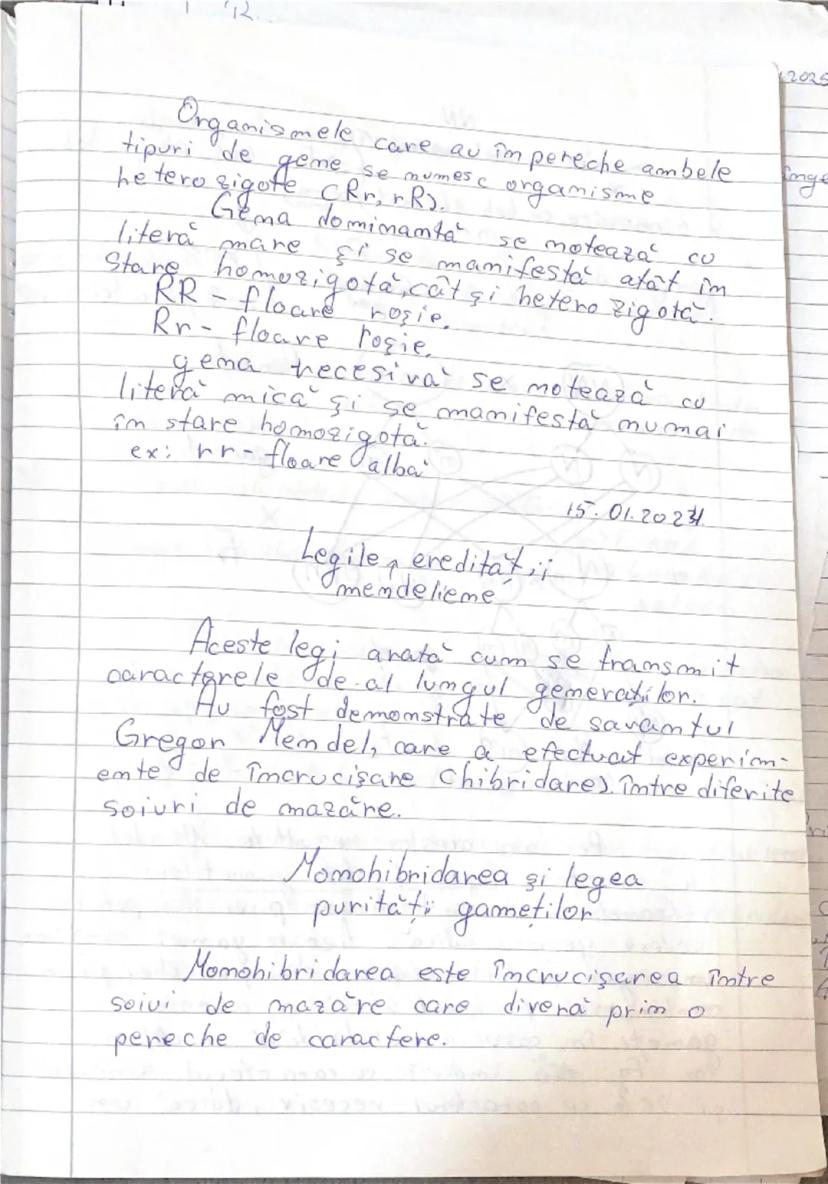 Organismele care au în pereche ambele
tipuri de gene se numesc organisme
heterozigote (Rr, rR).
Gena dominantă se notează cu
literă mare și se manifestă atât în
stare homozigotă, cât și heterozigotă.
RR - floare roșie.
Rr - floare roșie.
gena recesivă se notează cu
literă mică și se manifestă numai
în stare homozigotă.
ex: rr - floare albă
15.01.2024
Legile eredității
mendeliene
Aceste legi arată cum se transmit
caracterele de-al lungul generațiilor.
Au fost demonstrate de savantul
Gregor Mendel, care a efectuat experim-
ente de încrucișare (hibridare). între diferite
soiuri de mazăre.
Monohibridarea și legea
purității gameților
Monohibridarea este încrucișarea între
soiui de mazăre care diveră prin o
pereche de caractere.